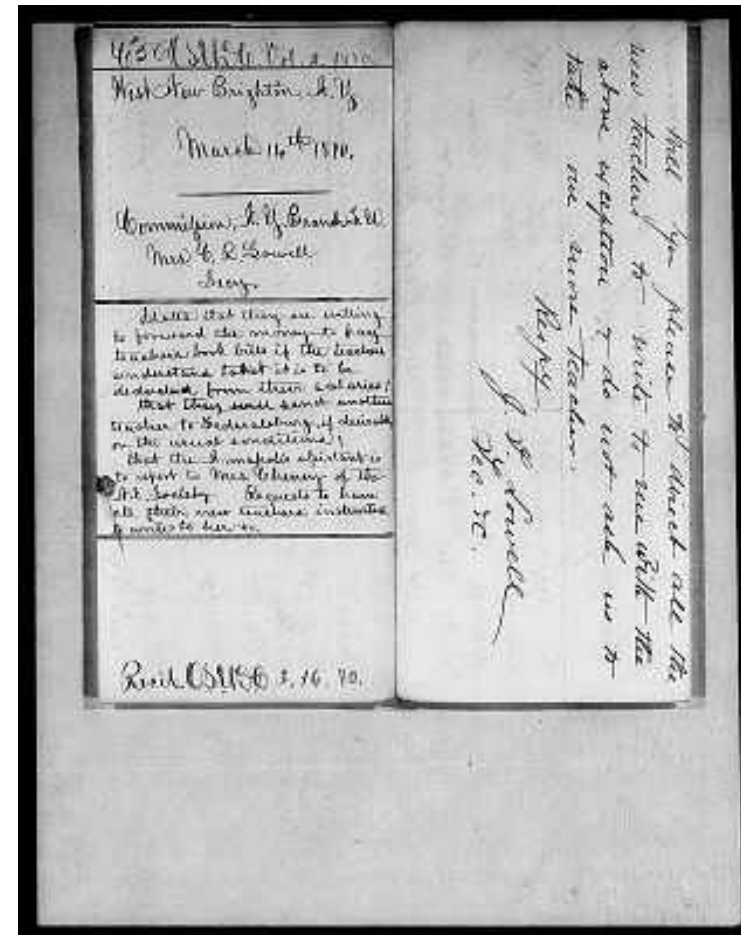 West New Brighton, N.Y.
March 14th 1870.
Commission, N.Y. Branch
Mrs C. R. Lowell
Secy.
States that they are willing
to forward the money to pay
teachers book bills if the teachers
understand that it is to be
deducted from their salaries;
that they will send another
teacher to Federalsburg, if desired
on the usual conditions;
that the Annapolis assistant is
to report to Mrs Cheney of the
N.E. Society. Requests to have
all their new teachers instructed
to write to her
Recd 3.16.70.
Will you please to direct all the
new teachers to write to me with the
above exception & do not ask us to
take one more teacher.
Respy
J. S. Lowell
Sec. &c.